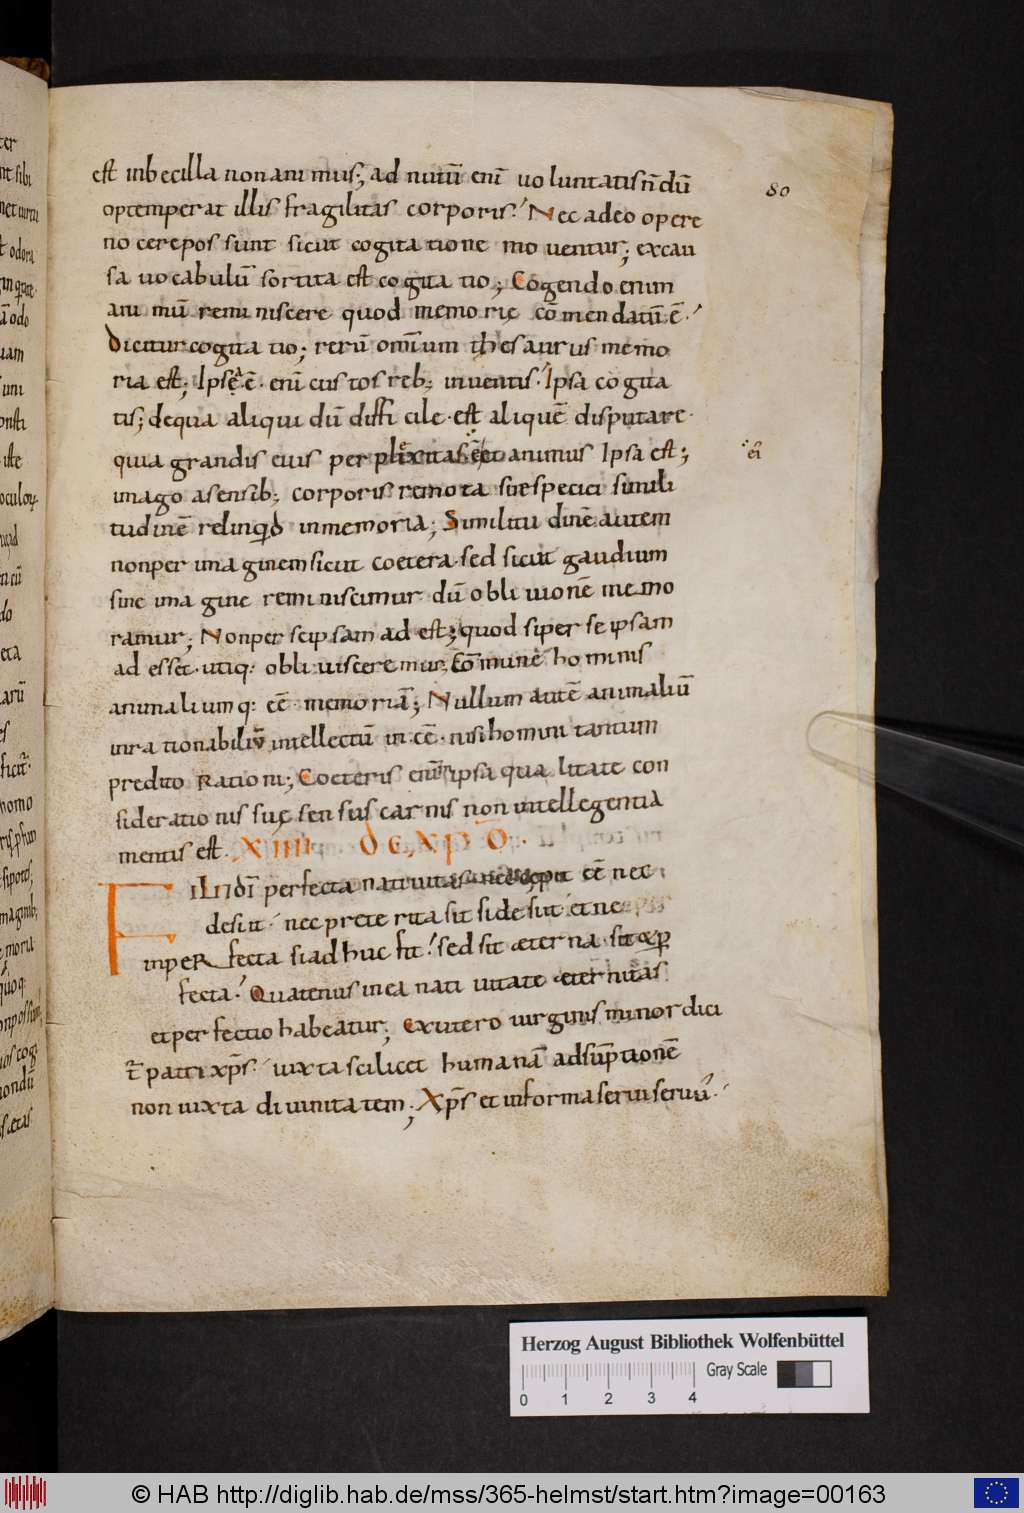 80
est inbecilla non animus; ad nutū enī uoluntatis n̄dū
optemperat illis fragilitas corporis. Nec adeo opere
no cere pos sunt sicut cogitatione mouentur; ex cau
sa uocabulū sortita est cogitatio; Cogendo enim
animū reminiscere quod memorię cōmendatū ē.
Dicitur cogitatio; rerū omīum thesaurus memo
ria est; Ipsę ē enī custos reb; inuentis. Ipsa cogita
tis; de qua aliqui dū difficile est aliquē disputare.
quia grandis eius animus Ipsa est;
eī
imago a sensib; corporis remota speciei simili
tudinē in memoria; Similitudinē autem
non per imaginem sicut coetera. sed sicut gaudium
sine imagine reminiscimur dū obliuionē memo
ramur; Non per se ipsam adest; quod si per se ipsam
adesset. utiq: obliuisceremur. Cōmunē hominis
animaliumq: eē memoriā; Nullum autē animaliū
inrationabiliū intellectū in eē. nisi homini tantum
predito Rationi; Coeteris enī ipsa qualitate con
siderationis suę sensus carnis non intellegentia
mentis est. XIIII DE XPO.
FILII DĪ perfecta natiuitas nec cępit eē nec
desiit. nec preterita sit si desiit et ne
inpeRfecta si adhuc fit. sed sit æterna. sit & ꝑ
fecta. Quatenus in ea natiuitate æternitas
et perfectio habeatur; Ex utero uirginis minor dici
t̄ patri xp̄s. iuxta scilicet humanā adsūptionē
non iuxta diuinitatem; Xp̄s et in forma serui seruū.
Herzog August Bibliothek Wolfenbüttel
Gray Scale
0 1 2 3 4
© HAB http://diglib.hab.de/mss/365-helmst/start.htm?image=00163